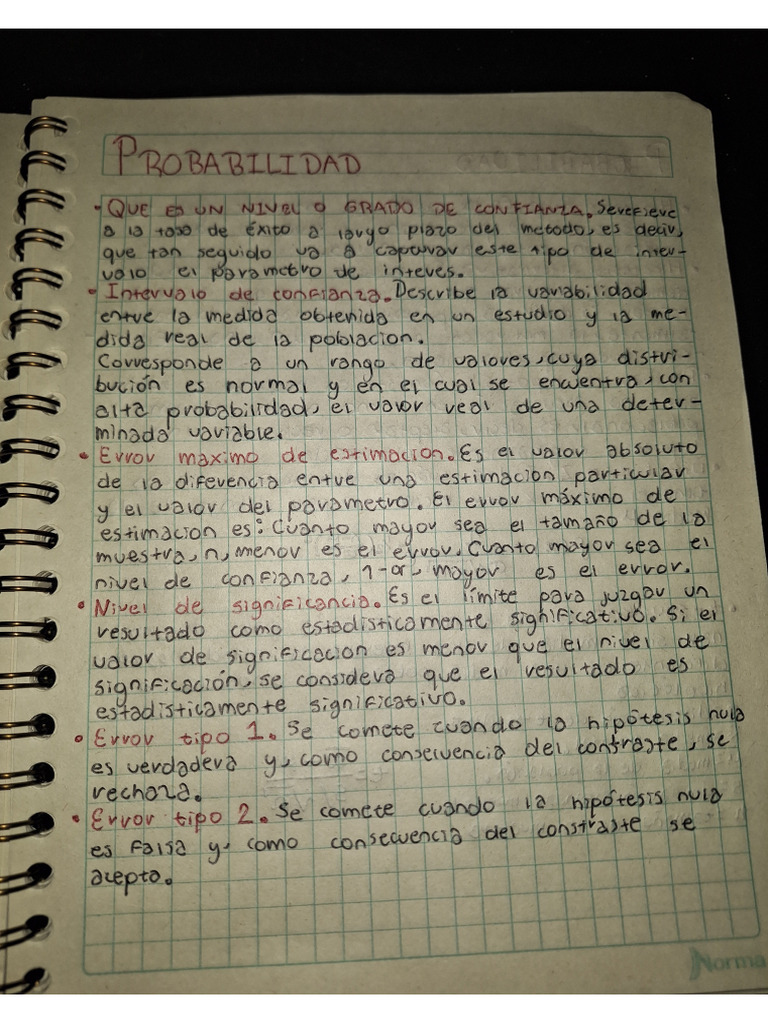 PROBABILIDAD
• QUE ES UN NIVEL O GRADO DE CONFIANZA. Se refiere
a la tasa de éxito a largo plazo del metodo, es decir,
que tan seguido va a capturar este tipo de inter-
valo el parametro de interes.
• Intervalo de confianza. Describe la variabilidad
entre la medida obtenida en un estudio y la me-
dida real de la poblacion.
Corresponde a un rango de valores, cuya distri-
bución es normal y en el cual se encuentra, con
alta probabilidad, el valor real de una deter-
minada variable.
• Error maximo de estimacion. Es el valor absoluto
de la diferencia entre una estimacion particular
y el valor del parametro. El error máximo de
estimacion es: Cuanto mayor sea el tamaño de la
muestra, n, menor es el error. Cuanto mayor sea el
nivel de confianza, 1-α, mayor es el error.
• Nivel de significancia. Es el límite para juzgar un
resultado como estadisticamente significativo. Si el
valor de significacion es menor que el nivel de
significación, se considera que el resultado es
estadisticamente significativo.
• Error tipo 1. Se comete cuando la hipótesis nula
es verdadera y, como consecuencia del contraste, se
rechaza.
• Error tipo 2. Se comete cuando la hipótesis nula
es falsa y, como consecuencia del constraste se
acepta.
Norma